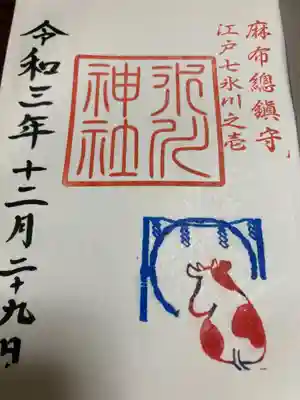 麻布總鎮守
江戸七氷川之壱
氷川神社
令和三年十二月二十九日